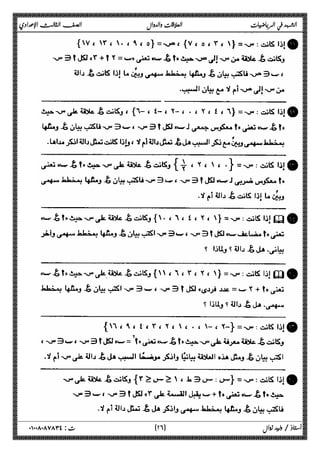 الشهد في الرياضيات العلاقات والدوال الصف الثالث الإعدادي
إذا كانت : س = {١ ، ٣ ، ٥ ، ٧} ، ص = {٥ ، ٩ ، ١٠ ، ١٣ ، ١٧}
وكانت ع علاقة من س إلى ص حيث «ا ع ب» تعنى ب = ٢ ا + ٣ لكل ا ∈ س
، ب ∈ ص فاكتب بيان ع ومثلها بمخطط سهمى وبين ما إذا كانت ع دالة
من س إلى ص أم لا مع بيان السبب.
إذا كانت : س = {٦ ، ٤ ، ٢ ، ٠ ، -٢ ، -٤ ، -٦} ، وكانت ع علاقة على س حيث
«ا ع ب» تعنى «ا معكوس جمعى لـ ب» لكل ا ∈ س ، ب ∈ س فاكتب بيان ع ومثلها
بمخطط سهمى وبين مع ذكر السبب هل ع تمثل دالة أم لا ، وإذا كانت تمثل دالة اذكر مداها.
إذا كانت : س = {٠ ، ١ ، ٢ ، ١/٢} وكانت ع علاقة على س حيث «ا ع ب» تعنى
«ا معكوس ضربى لـ ب» لكل ا ∈ س ، ب ∈ س فاكتب بيان ع ومثلها بمخطط سهمى
وبين ما إذا كانت ع دالة أم لا.
إذا كانت : س = {١ ، ٢ ، ٤ ، ٦ ، ١٠} وكانت ع علاقة على س حيث «ا ع ب»
تعنى «ا مضاعف ب» لكل ا ∈ س ، ب ∈ س اكتب بيان ع ومثلها بمخطط سهمى وآخر
بيانى. هل ع دالة ؟ ولماذا ؟
إذا كانت : س = {١ ، ٢ ، ٣ ، ٦ ، ١١} وكانت ع علاقة على س حيث «ا ع ب»
تعنى «ا + ٢ ب = عدد فردى» لكل ا ∈ س ، ب ∈ س اكتب بيان ع ومثلها بمخطط
سهمى. هل ع دالة ؟ ولماذا ؟
إذا كانت : س = {-٢ ، -١ ، ٠ ، ١ ، ٢ ، ٣ ، ٤ ، ٩ ، ١٦}
وكانت ع علاقة معرفة على س حيث «ا ع ب» تعنى «ا² = ب» لكل ا ∈ س ، ب ∈ س ،
اكتب بيان ع ومثل هذه العلاقة بيانيًا واذكر موضحًا السبب هل ع دالة على س أم لا.
إذا كانت : س = {س : س ∈ ط ، ١ ≤ س ≤ ٣} وكانت ع علاقة على س
حيث «ا ع ب» تعنى «ا + ب يقبل القسمة على ٣» لكل ا ∈ س ، ب ∈ س
فاكتب بيان ع ومثلها بمخطط سهمى واذكر هل ع تمثل دالة أم لا.
(٢٦) ت : ٠١٠٠٨٠٨٧٨٣٤